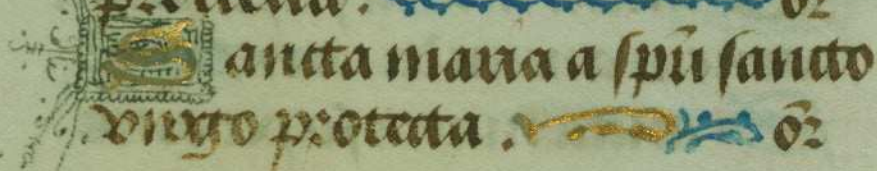 or̄
Sancta maria a spū sancto
virgo protecta. or̄